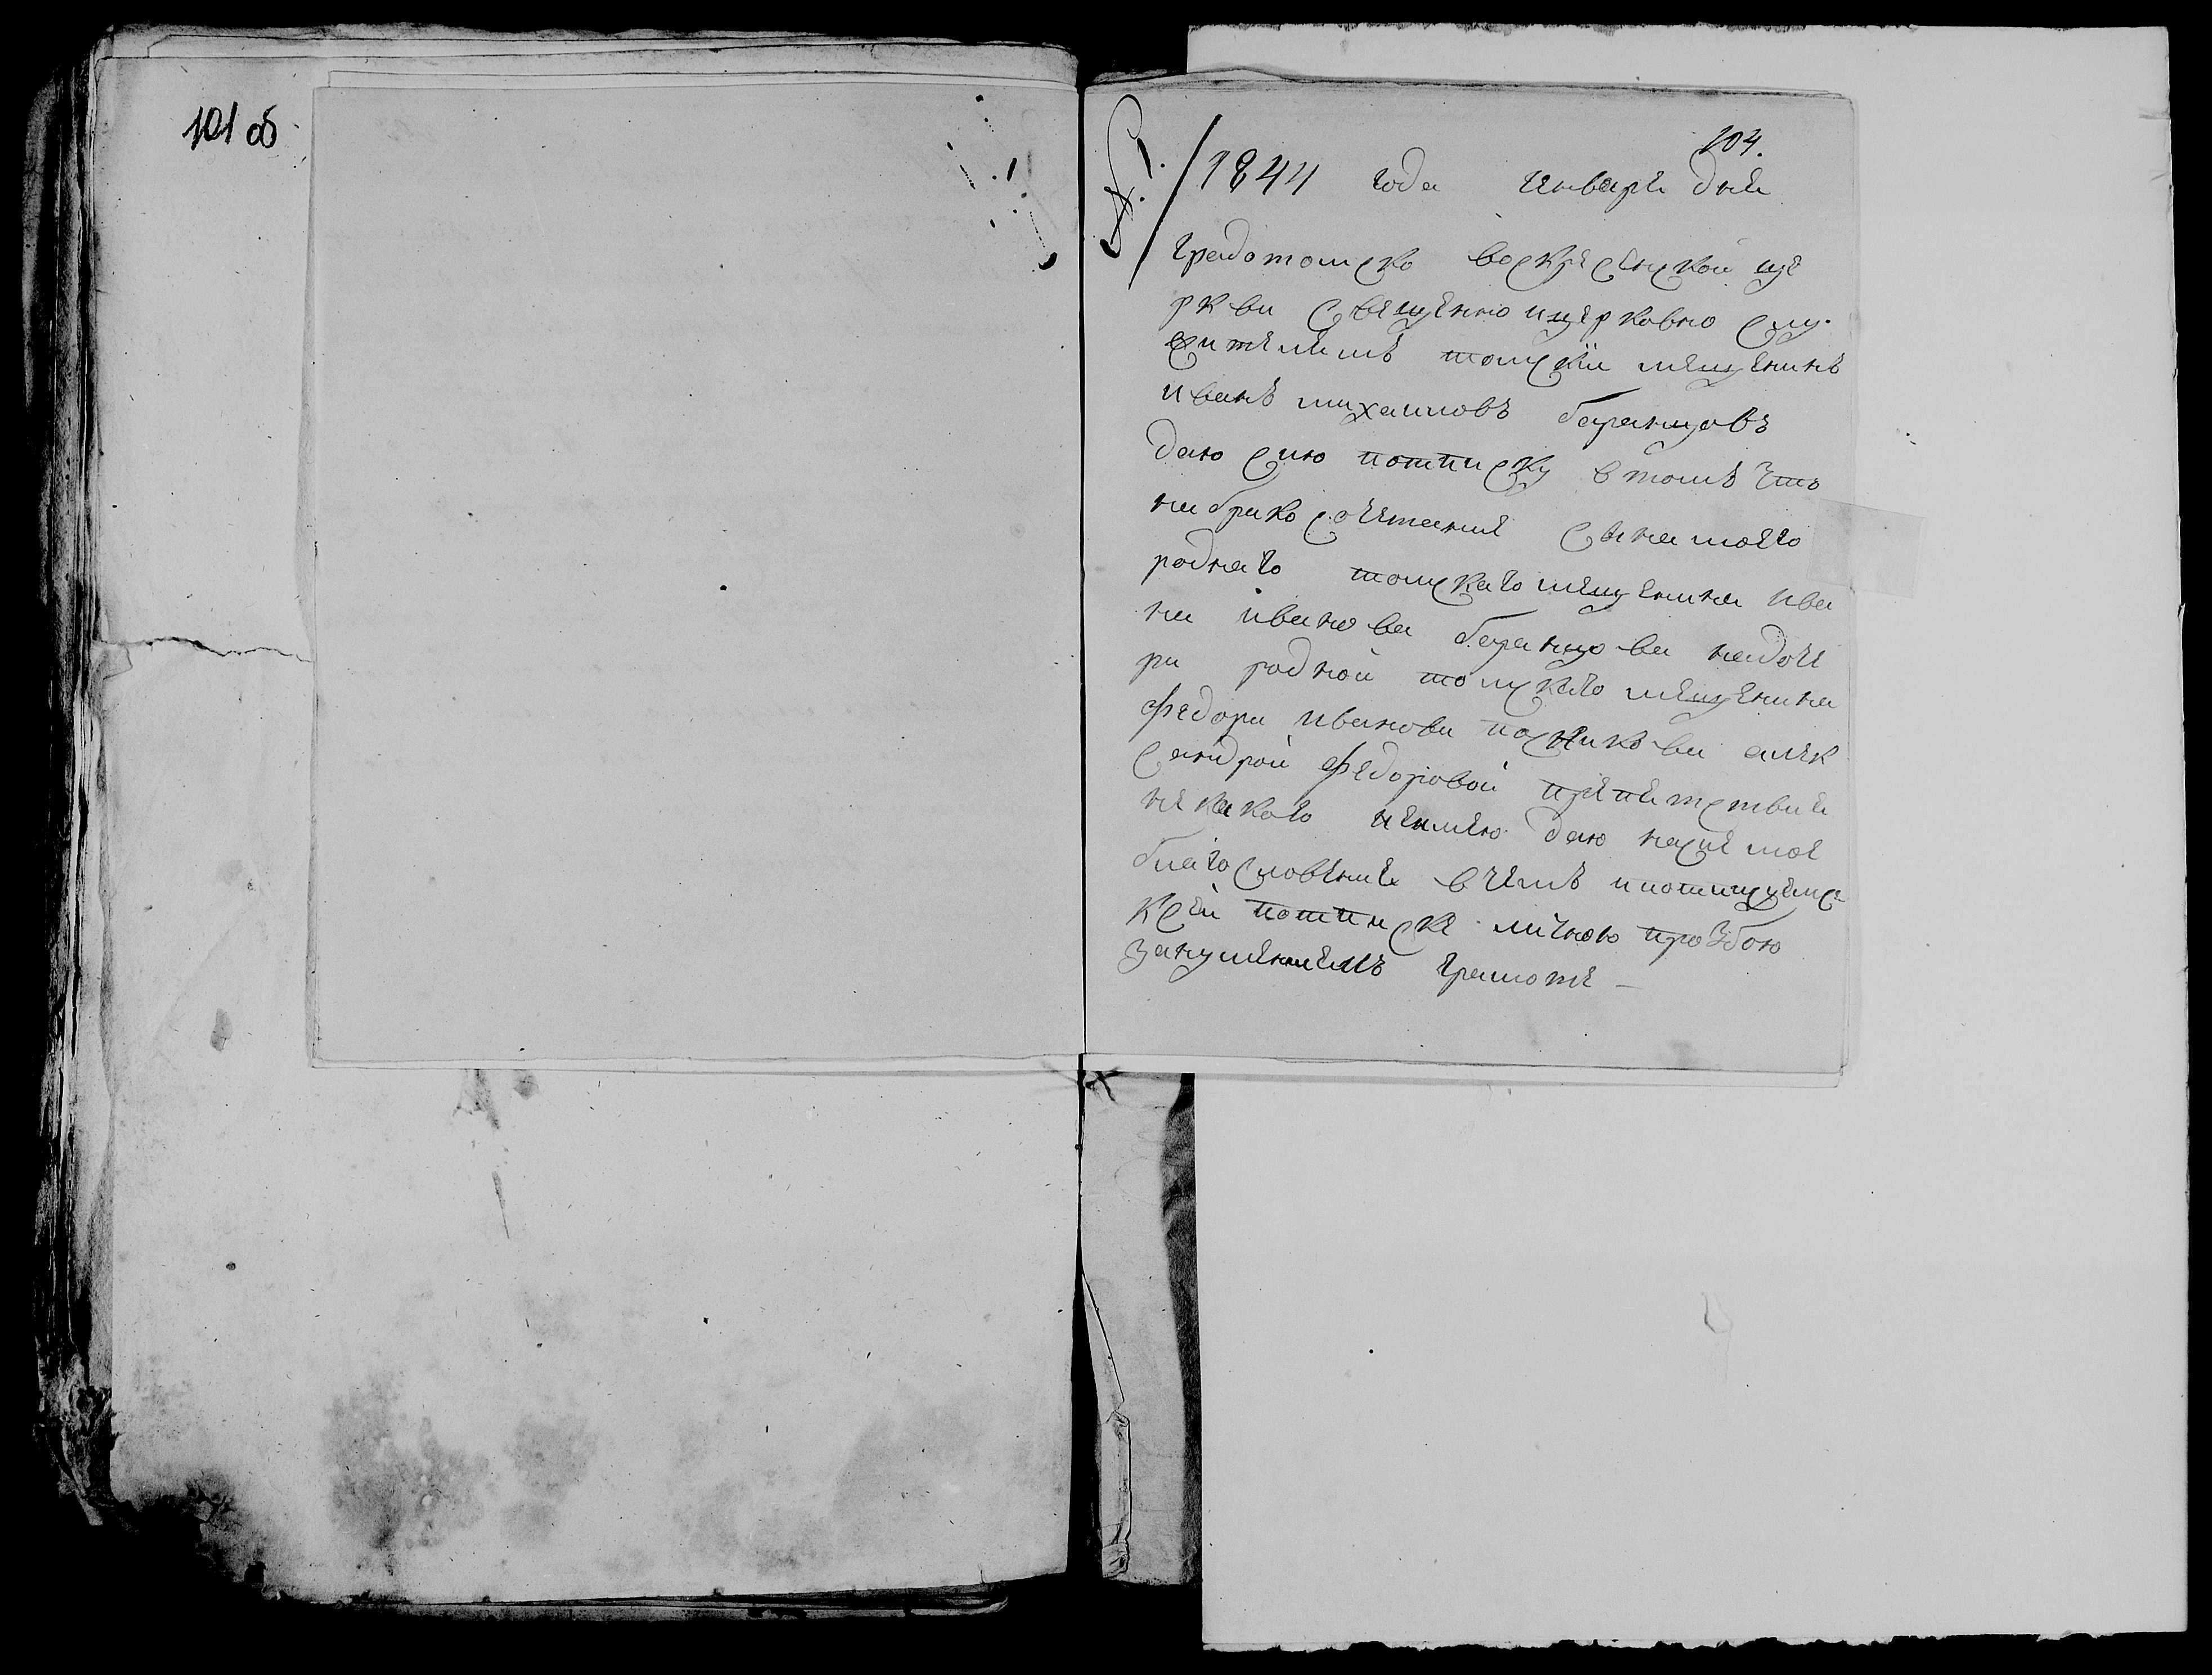 101 об
104.
№ 1.
1844 года января дня
градотомско воскресенской це
ркви священно ицерковно слу
жителямъ томскїи мещенинъ
иванъ михаиловъ баранцовъ
даю сию потписку втомъ что
на бракосочетание сына моего
роднаго томскаго мещенина ива
на иванова баранцова надоче
ри родной томскаго мещенина
федора иванова посникова алек
сандрой федоровой препятствия
не какого неимею даю насие мое
благословение вчемъ ипотписуемс
ксей потписке личною прозбою
занумениемъ грамоте